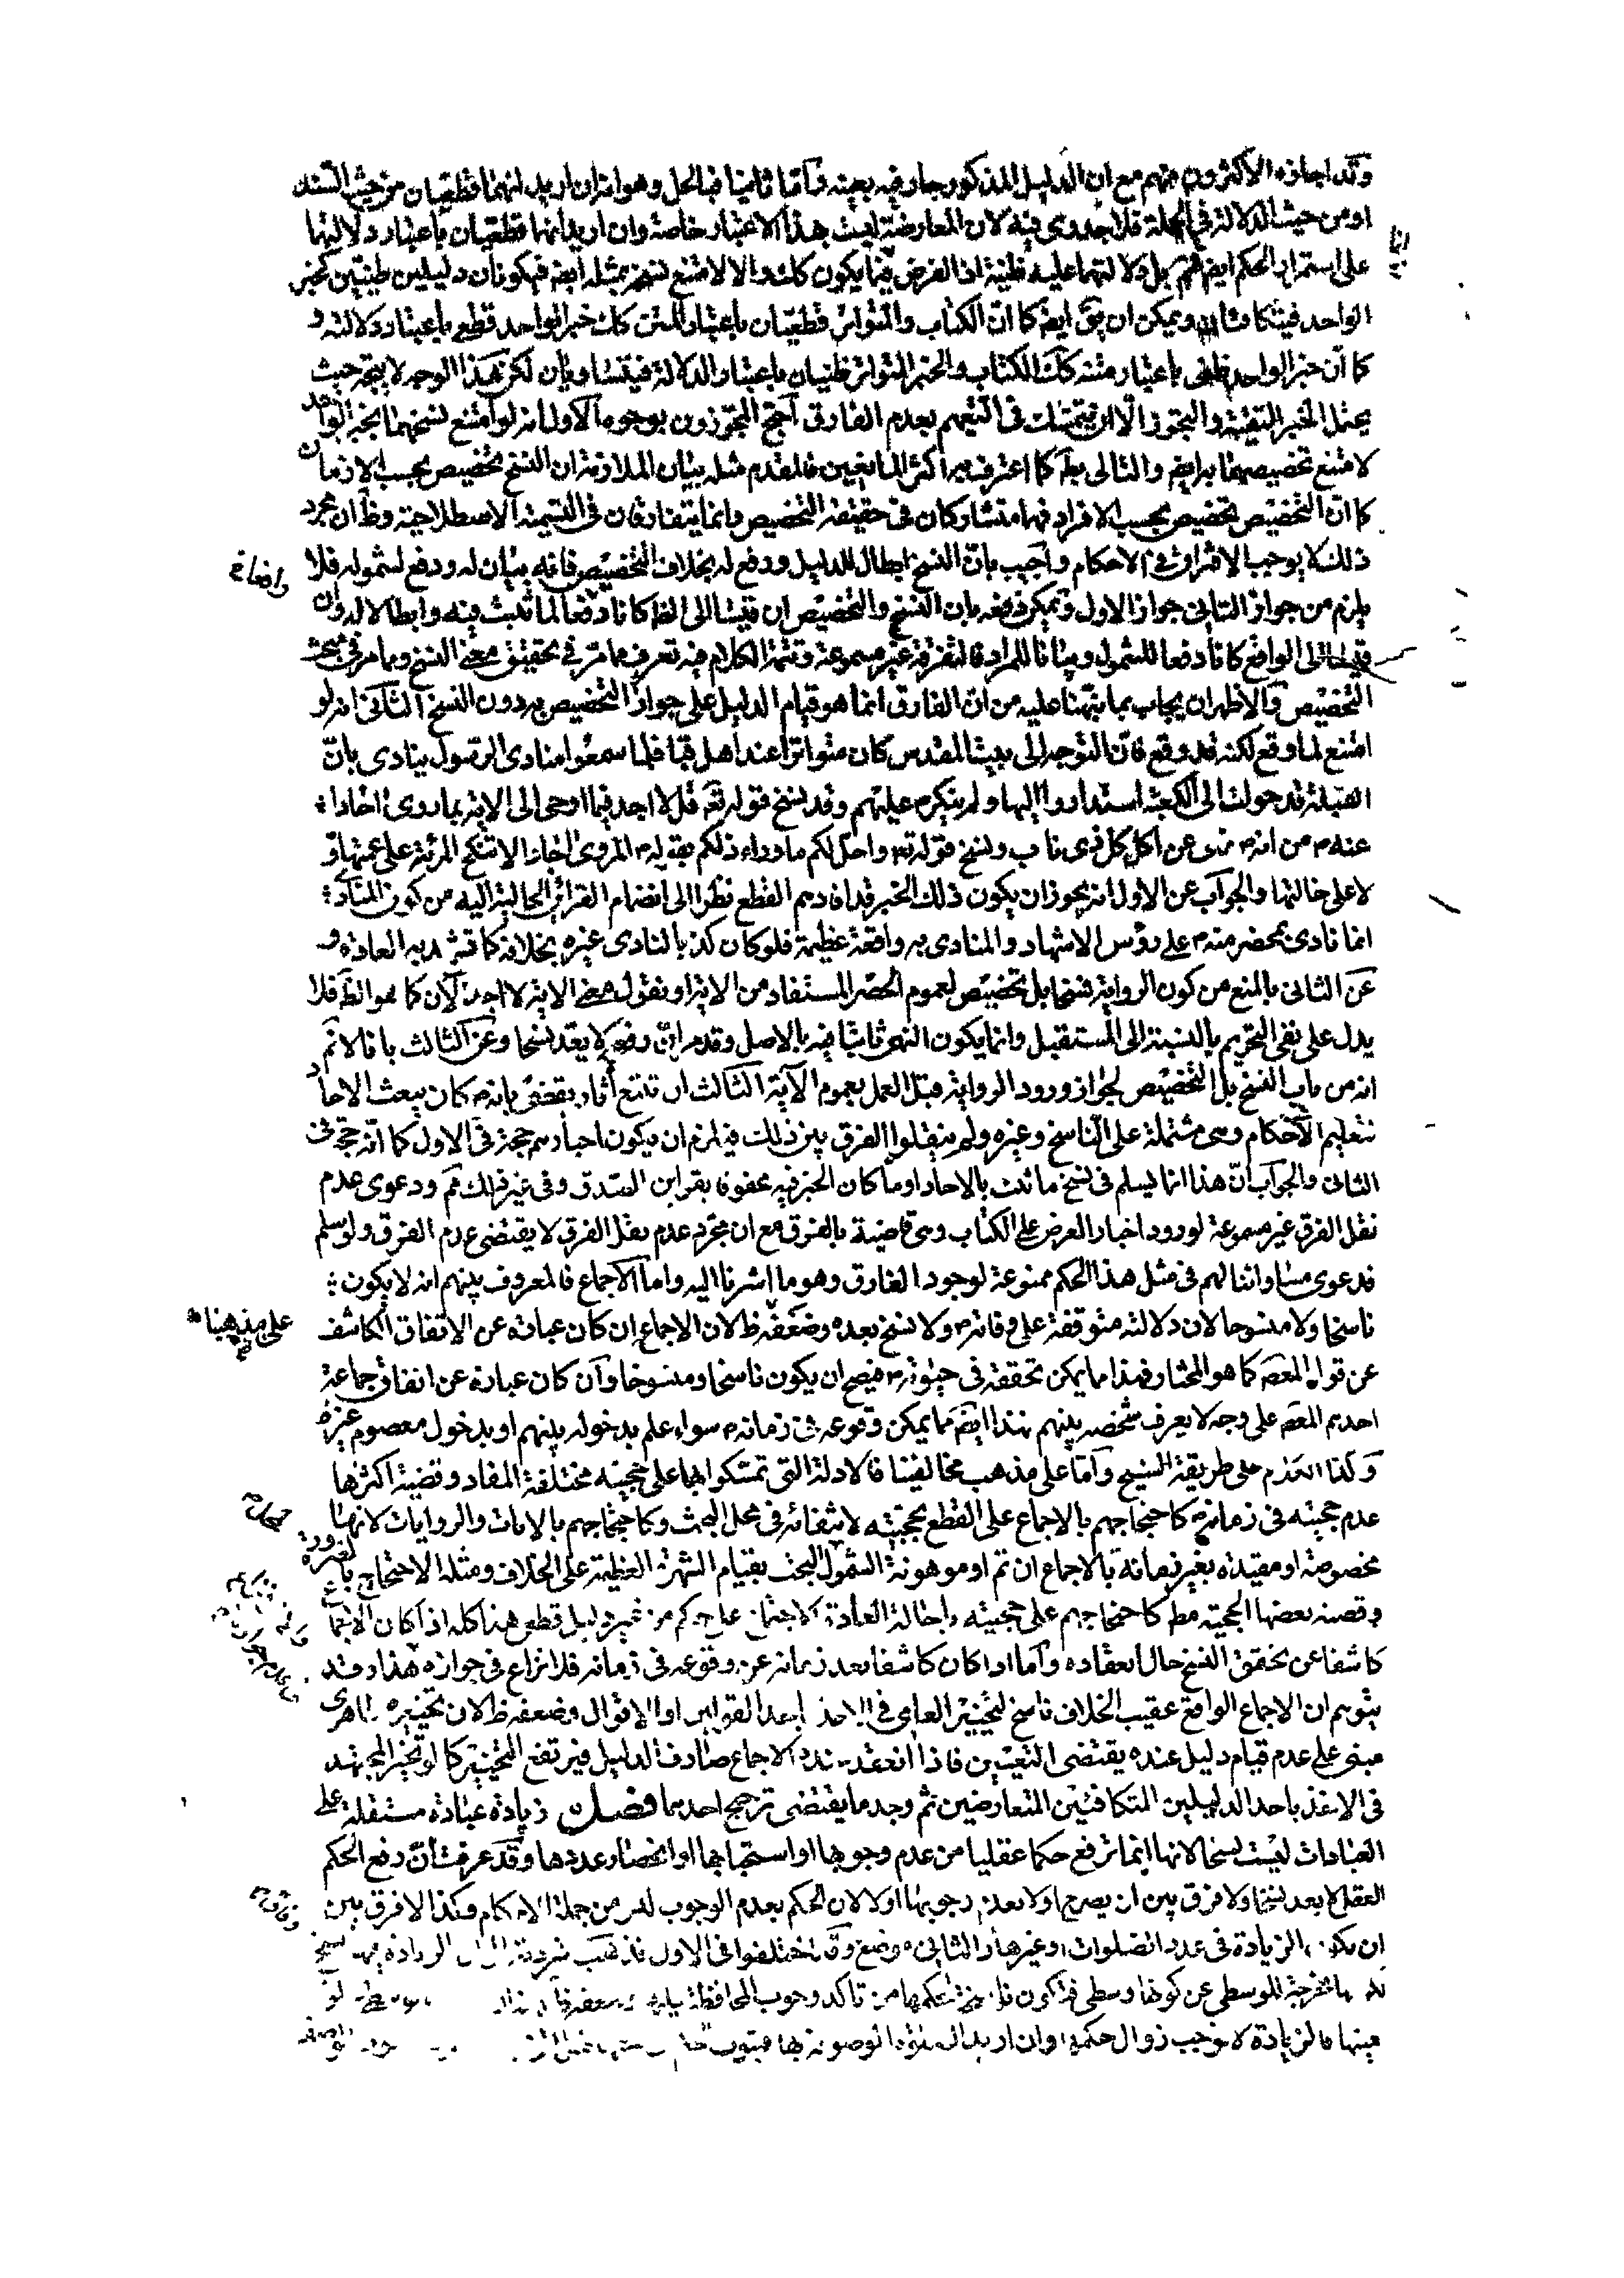 وقد اجازه الاكثرون منهم مع ان الدليل المذكور جار فيه بعينه وامّا ثانيا فبالحل وهو انه ان اريد انهما قطعيان من حيث السند
او من حيث الدلالة في الجملة فلا جدوى فيه لان المعارضة ليست بهذا الاعتبار خاصة وان اريد انهما قطعيان باعتبار دلالتهما
على استمرار الحكم ايضا فمم بل دلالتهما عليه ظنية اذ الفرض فيما يكون كك والا لامتنع نسخه بمثله ايضا فيكونان دليلين ظنيين كخبر
الواحد فيتكافئان ويمكن ان يق ايضا كما انّ الكتاب والمتواتر قطعيّان باعتبار المتن كك خبر الواحد قطعي باعتبار دلالته و
كما انّ خبر الواحد ظني باعتبار متنه كك الكتاب والخبر المتواتر ظنيان باعتبار الدلالة فيتساويان لكن هذا الوجه لا يتجه حيث
يحتمل الخبر التقية والتجوز الّا ان يتمسّك في التعميم بعدم الفارق احتج المجوّزون بوجوه الاول انه لو امتنع نسخهما بخبر الواحد
لامتنع تخصيصهما به ايضا والتالى بط كما اعترف به اكثر المانعين فالمقدم مثله بيان الملازمة ان النسخ تخصيص بحسب الازمان
كما انّ التخصيص تخصيص بحسب الافراد فهما متشاركان في حقيقة التخصيص وانما يتفارقان في التسمية الاصطلاحية وظ ان مجرد
ذلك لا يوجب الافتراق في الاحكام واجيب بانّ النسخ ابطال للدليل ورفع له بخلاف التخصيص فانه بيان له ودفع لشموله فلا
يلزم من جواز الثانى جواز الاول ويمكن دفعه بان النسخ والتخصيص ان قيسا الى الظ كانا دفعا لما ثبت فيه وابطالا له وان
قيسا الى الواقع كانا دفعا للشمول وبيانا للمراد فالتفرقة غير مسموعة وتتمة الكلام فيه تعرف مما مر في تحقيق معنى النسخ ومما مر في مبحث
التخصيص والاظهر ان يجاب بما نبّهنا عليه من انّ الفارق انما هو قيام الدليل على جواز التخصيص به دون النسخ الثانى انه لو
امتنع لما وقع لكنه قد وقع فانّ التوجه الى بيت المقدس كان متواترا عند اهل قبا فلما سمعوا منادى الرسول ينادى بانّ
القبلة قد حولت الى الكعبة استداروا اليها ولم ينكره عليهم وقد نسخ قوله تع قل لا اجد فيما اوحى الى الاية بما روى احادا
عنه م من انه م نهى عن اكل كل ذى ناب ونسخ قوله تع واحل لكم ما وراء ذلكم بقوله م المروى احادا لا تنكح المرئة على عمتها و
لا على خالتها والجواب عن الاول انه يجوز ان يكون ذلك الخبر قد افادهم القطع نظرا الى انضمام القرائن الحالية اليه من كون المنادى
انما نادى بمحضر منه م على رؤس الاشهاد والمنادى به واقعة عظيمة فلو كان كذبا لنادى غيره بخلافه كما تشهد به العادة و
عن الثانى بالمنع من كون الرواية نسخا بل تخصيص لعموم الحصر المستفاد من الاية او نقول معنى الاية لا اجد الآن كما هو الظ فلا
يدل على نفى التحريم بالنسبة الى المستقبل وانما يكون النهى ثابتا فيه بالاصل وقد مر انّ رفعه لا يعدّ نسخا وعن الثالث بانا لا نم
انه من باب النسخ بل التخصيص لجواز ورود الرواية قبل العمل بعموم الآية الثالث ان تتبع آثاره يقضى بانه م كان يبعث الاحاد
لتعليم الاحكام وهى مشتملة على النّاسخ وغيره ولم ينقلوا الفرق بين ذلك فيلزم ان يكون اخبارهم حجة في الاول كما انّه حجة في
الثانى والجواب انّ هذا انما يسلم في نسخ ما ثبت بالاحاد او ما كان الخبر فيه محفوفا بقراين الصدق وفي غير ذلك مم ودعوى عدم
نقل الفرق غير مسموعة لورود اخبار العرض على الكتاب وهى قاضية بالفرق مع ان مجرد عدم نقل الفرق لا يقتضى عدم الفرق ولو سلم
فدعوى مساواتنا لهم في مثل هذا الحكم ممنوعة لوجود الفارق وهو ما اشرنا اليه واما الاجماع فالمعروف بينهم انه لا يكون
ناسخا ولا منسوخا لان دلالته متوقفة على وفاته م ولا نسخ بعده وضعفه ظ لان الاجماع ان كان عبارة عن الاتفاق الكاشف
على مذهبنا
عن قول المعصوم كما هو المختار فهذا مما يمكن تحققه في حيوته م فيصح ان يكون ناسخا ومنسوخا وان كان عبارة عن اتفاق جماعة
احدهم المعصوم على وجه لا يعرف شخصه بينهم فهذا ايضا مما يمكن وقوعه في زمانه م سواء علم بدخوله بينهم او بدخول معصوم غيره
وكذا الكلام على طريقة الشيخ وامّا على مذهب مخالفينا فالادلة التى تمسّكوا بها على حجيته مختلفة المفاد وقضية اكثرها
عدم حجيته في زمانه م كاحتجاجهم بالاجماع على القطع بحجيته لانتفائه في محل البحث وكاحتجاجهم بالايات والروايات لانها
مخصوصة او مقيدة بغير زمانه بالاجماع ان تم او موهونة الشمول للبحث بقيام الشهرة العظيمة على الخلاف ومثله الاحتجاج
وقضية بعضها الحجية مط كاحتجاجهم على حجيته باحالة العادة الاجتماع على حكم من غير دليل قطعى هذا كله اذا كان الاجماع
كاشفا عن تحقق النسخ حال انعقاده وامّا اذا كان كاشفا بعد زمانه عن وقوعه في زمانه فلا نزاع في جوازه هذا وقد
يتوهم ان الاجماع الواقع عقيب الخلاف ناسخ لتخيير العامى في الاخذ باحد القولين او الاقوال وضعفه ظ لان تخييره ظاهرى
مبنى على عدم قيام دليل عنده يقتضى التعيين فاذا انعقد عنده الاجماع صادف الدليل فيرتفع التخيير كما لو تخير المجتهد
في الاخذ باحد الدليلين المتكافئين المتعارضين ثم وجد ما يقتضى ترجيح احدهما فصل زيادة عبادة مستقلة على
العبادات ليست نسخا لانها انما ترفع حكما عقليا من عدم وجوبها او استحبابها او انحصار عددها وقد عرفت انّ رفع الحكم
العقلى لا يعد نسخا ولا فرق بين ان يصرح اولا بعدم وجوبها اولا لان الحكم بعدم الوجوب ليس من جملة الاحكام وكذا لا فرق بين
ان يكون الزيادة في عدد الصلوات او غيرها والثانى موضع وقد اختلفوا في الاول فذهب شرذمة الى ان الزيادة فيها نسخ
مخرجة للوسطى عن كونها وسطى فيكون ناسخة لحكمها من تاكد وجوب المحافظة عليها وضعفه
عينها فالزيادة لا توجب زوال حكمها وان اريد الصلوة الموصوفة بها